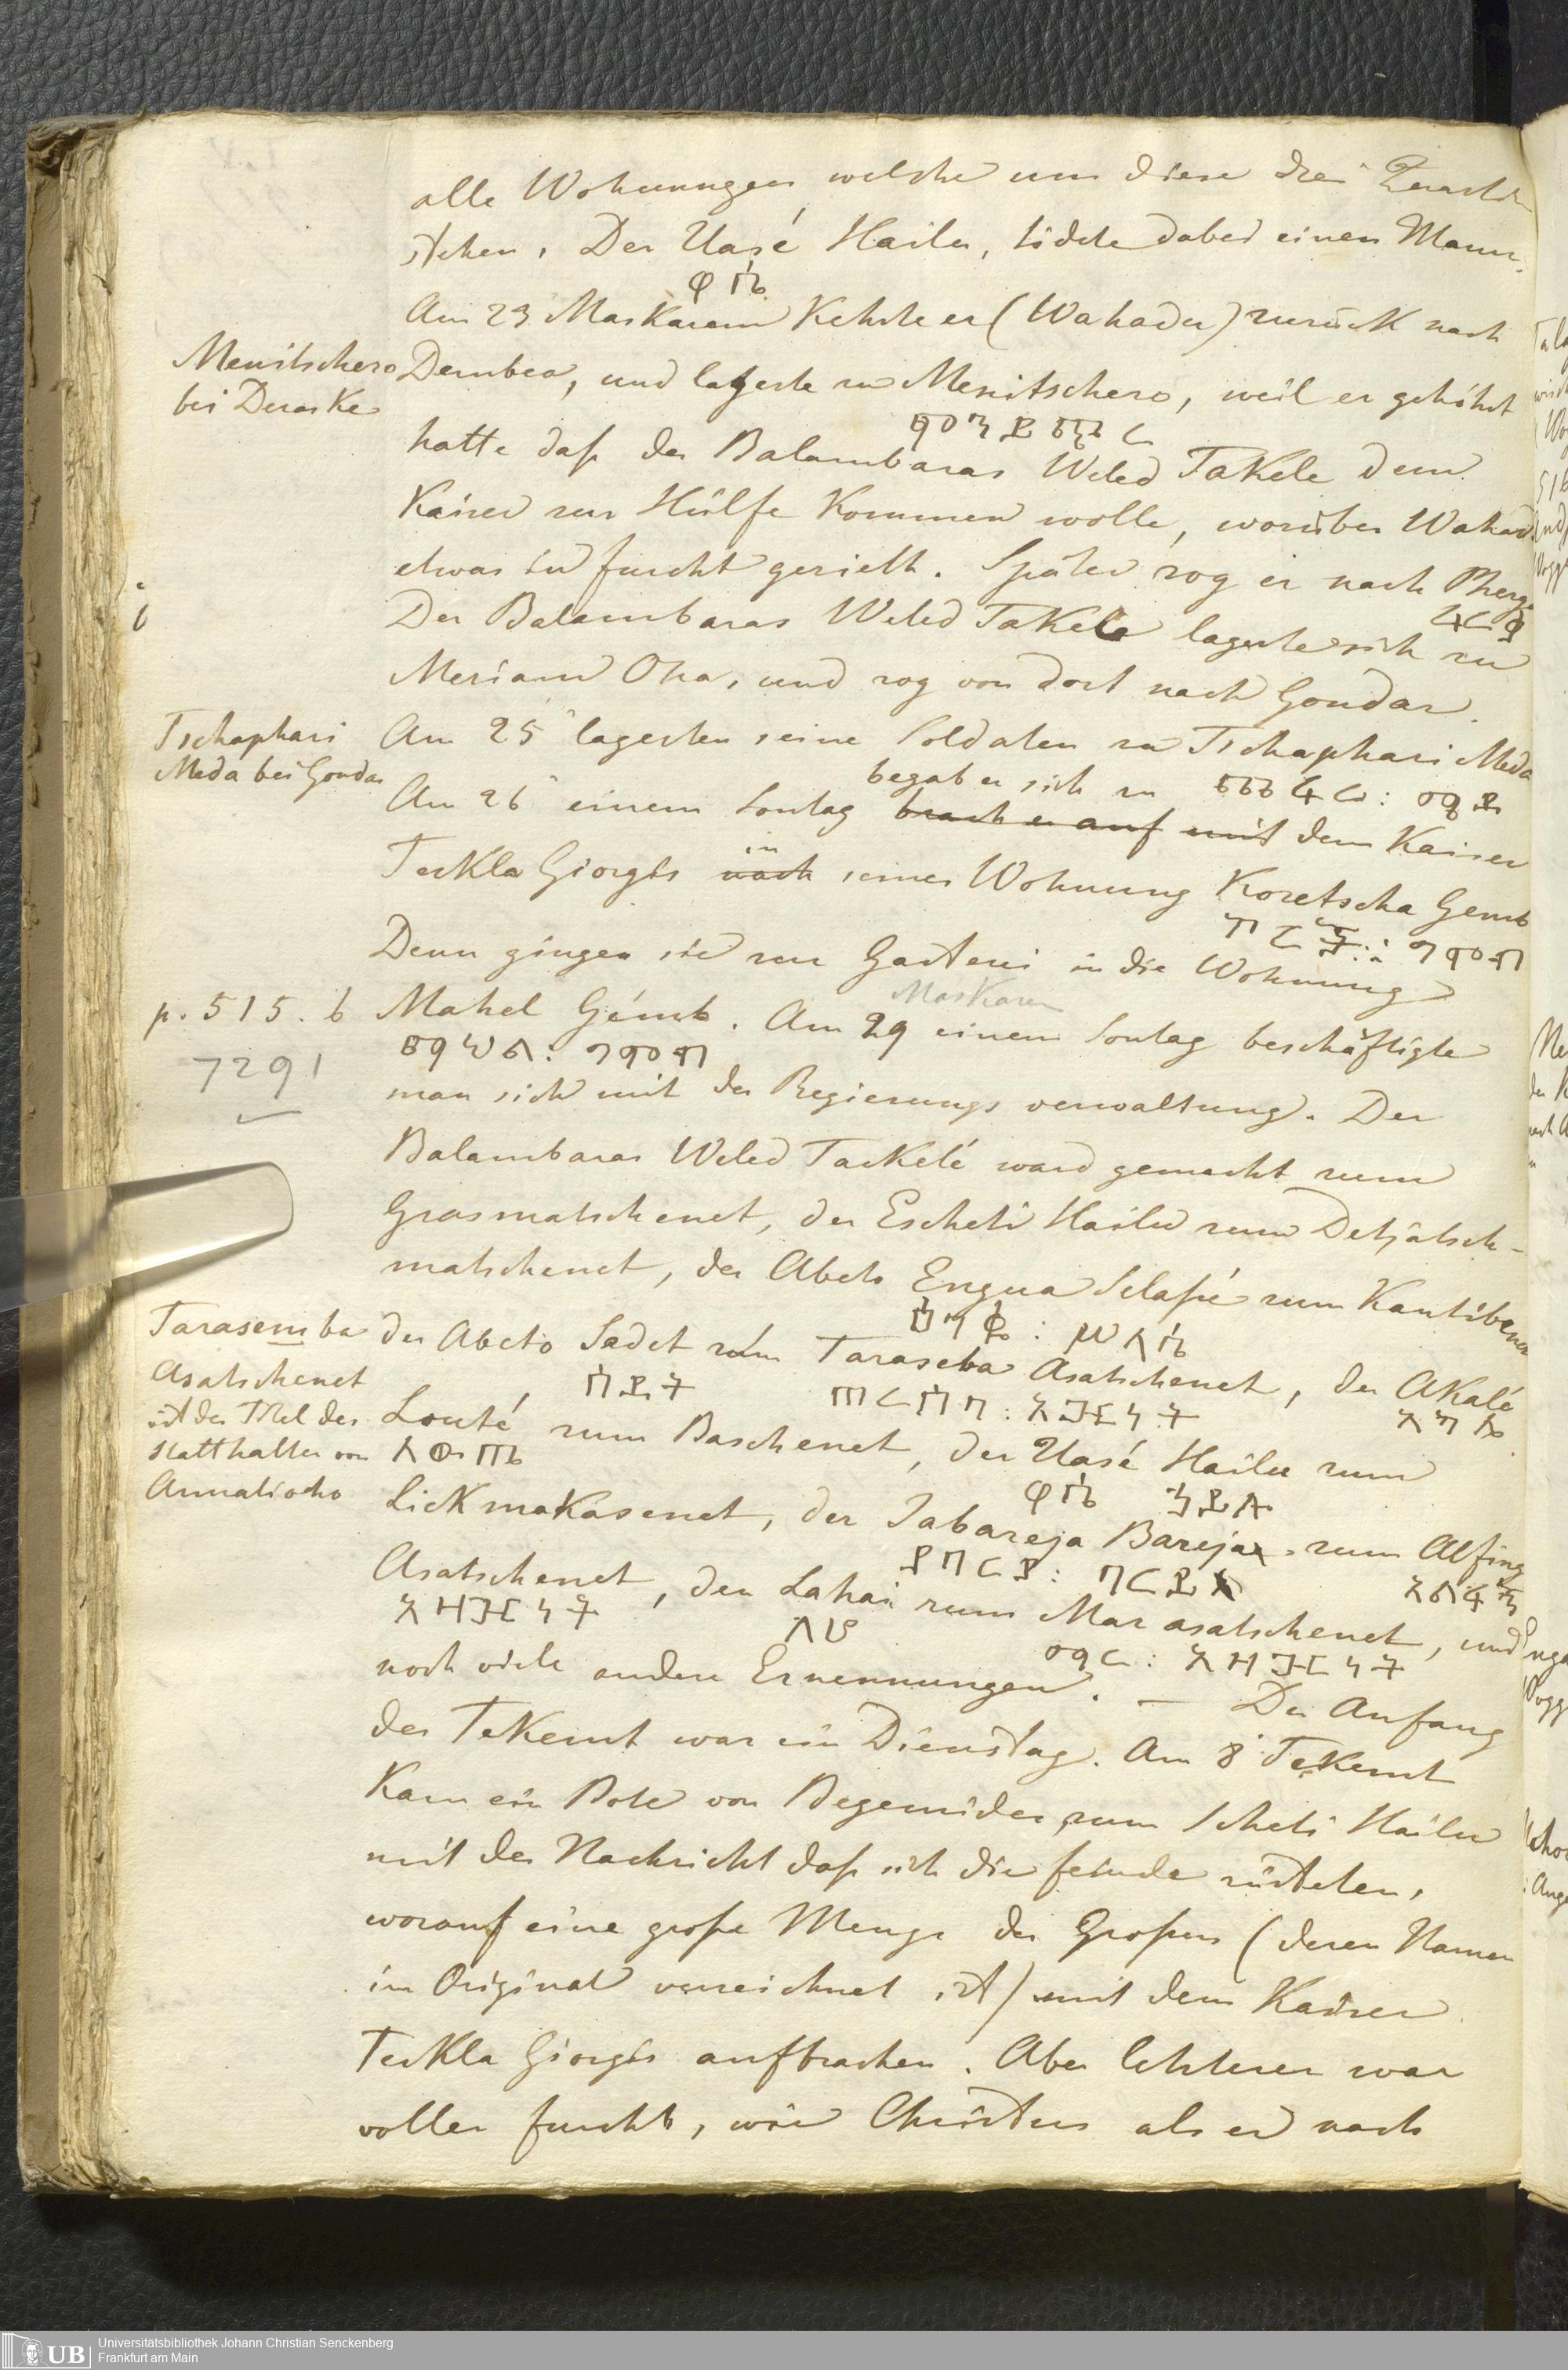 alle Wohnungen welche um diese drei
stehen. Der Uasé Hailu, tödete dabei einen Mann.
ዋሴ
Am 23 Maskaram kehrte er (Wahadu) zurück nach
Menitschero
bei Deraske
Dembea, und lagerte zu Menitschero, weil er gehöhrt
hatte daß der Balambaras Weled Takele dem
Kaiser zur Hülfe kommen wolle, worüber Wahad
etwas in furcht gerieth. Später zog er nach Pherq
ፋርቃ
b
Der Balambaras Weled Takele lagerte sich zu
Meriam Oha, und zog von dort nach Gondar.
Tschaphari
Meda bei Gondar
Am 25 lagerten seine Soldaten zu Tschaphari Meda
begab er sich zu ጨፋሪ: ሜዳ
Am 26 einem Sontag brach er auf mit dem Kaiser
in
Teckla Giorgis nach seiner Wohnung Koretscha Gemb
Denn gingen sie zur Gasterei in die Wohnung
p. 515. b
7291
Maskaram
Mahel Gémb. Am 29 einem Sontag beschäftigte
ማህል: ግምብ
man sich mit der Regierungs verwaltung. Der
Balambaras Weled Tackelé ward gemacht zum
Grasmatschenet, der Escheti Hailu zum Detjatsch-
matschenet, der Abeto Engua Selaßié zum Kantibenet
ሥላሴ
Tarasemba
Asatschenet
ist der Titel des
Statthalters von
Armatioho
der Abeto Sadet zum Taraseba Asatschenet, der Akalé
ሰደት
ጠርሰባ: አዣዥነት
አካሌ
Louté zum Baschenet, der Uasé Hailu zum
ሎውጤ
ዋሴ ኃይሉ
Lickmakasenet, der Jabareja Bareja zum Alfing
የበርያ: በርያ
አልፊኝ
Asatschenet, der Lahai zum Mar asatschenet, und
አዛዥነት
ላህ
ማር: አዛዥነት
noch viele andere Ernennungen. — Der Anfang
des Tekemt war ein Dienstag. Am 8 Tekemt
kam ein Bote von Begemider zum Scheti Hailu
mit der Nachricht daß sich die feinde rüsteten,
worauf eine große Menge der Großen (deren Namen
im Original verzeichnet ist) mit dem Kaiser
Teckla Giorgis aufbrachen. Aber letzterer war
voller furcht, wie Christus als er nach
Universitätsbibliothek Johann Christian Senckenberg
Frankfurt am Main
UB